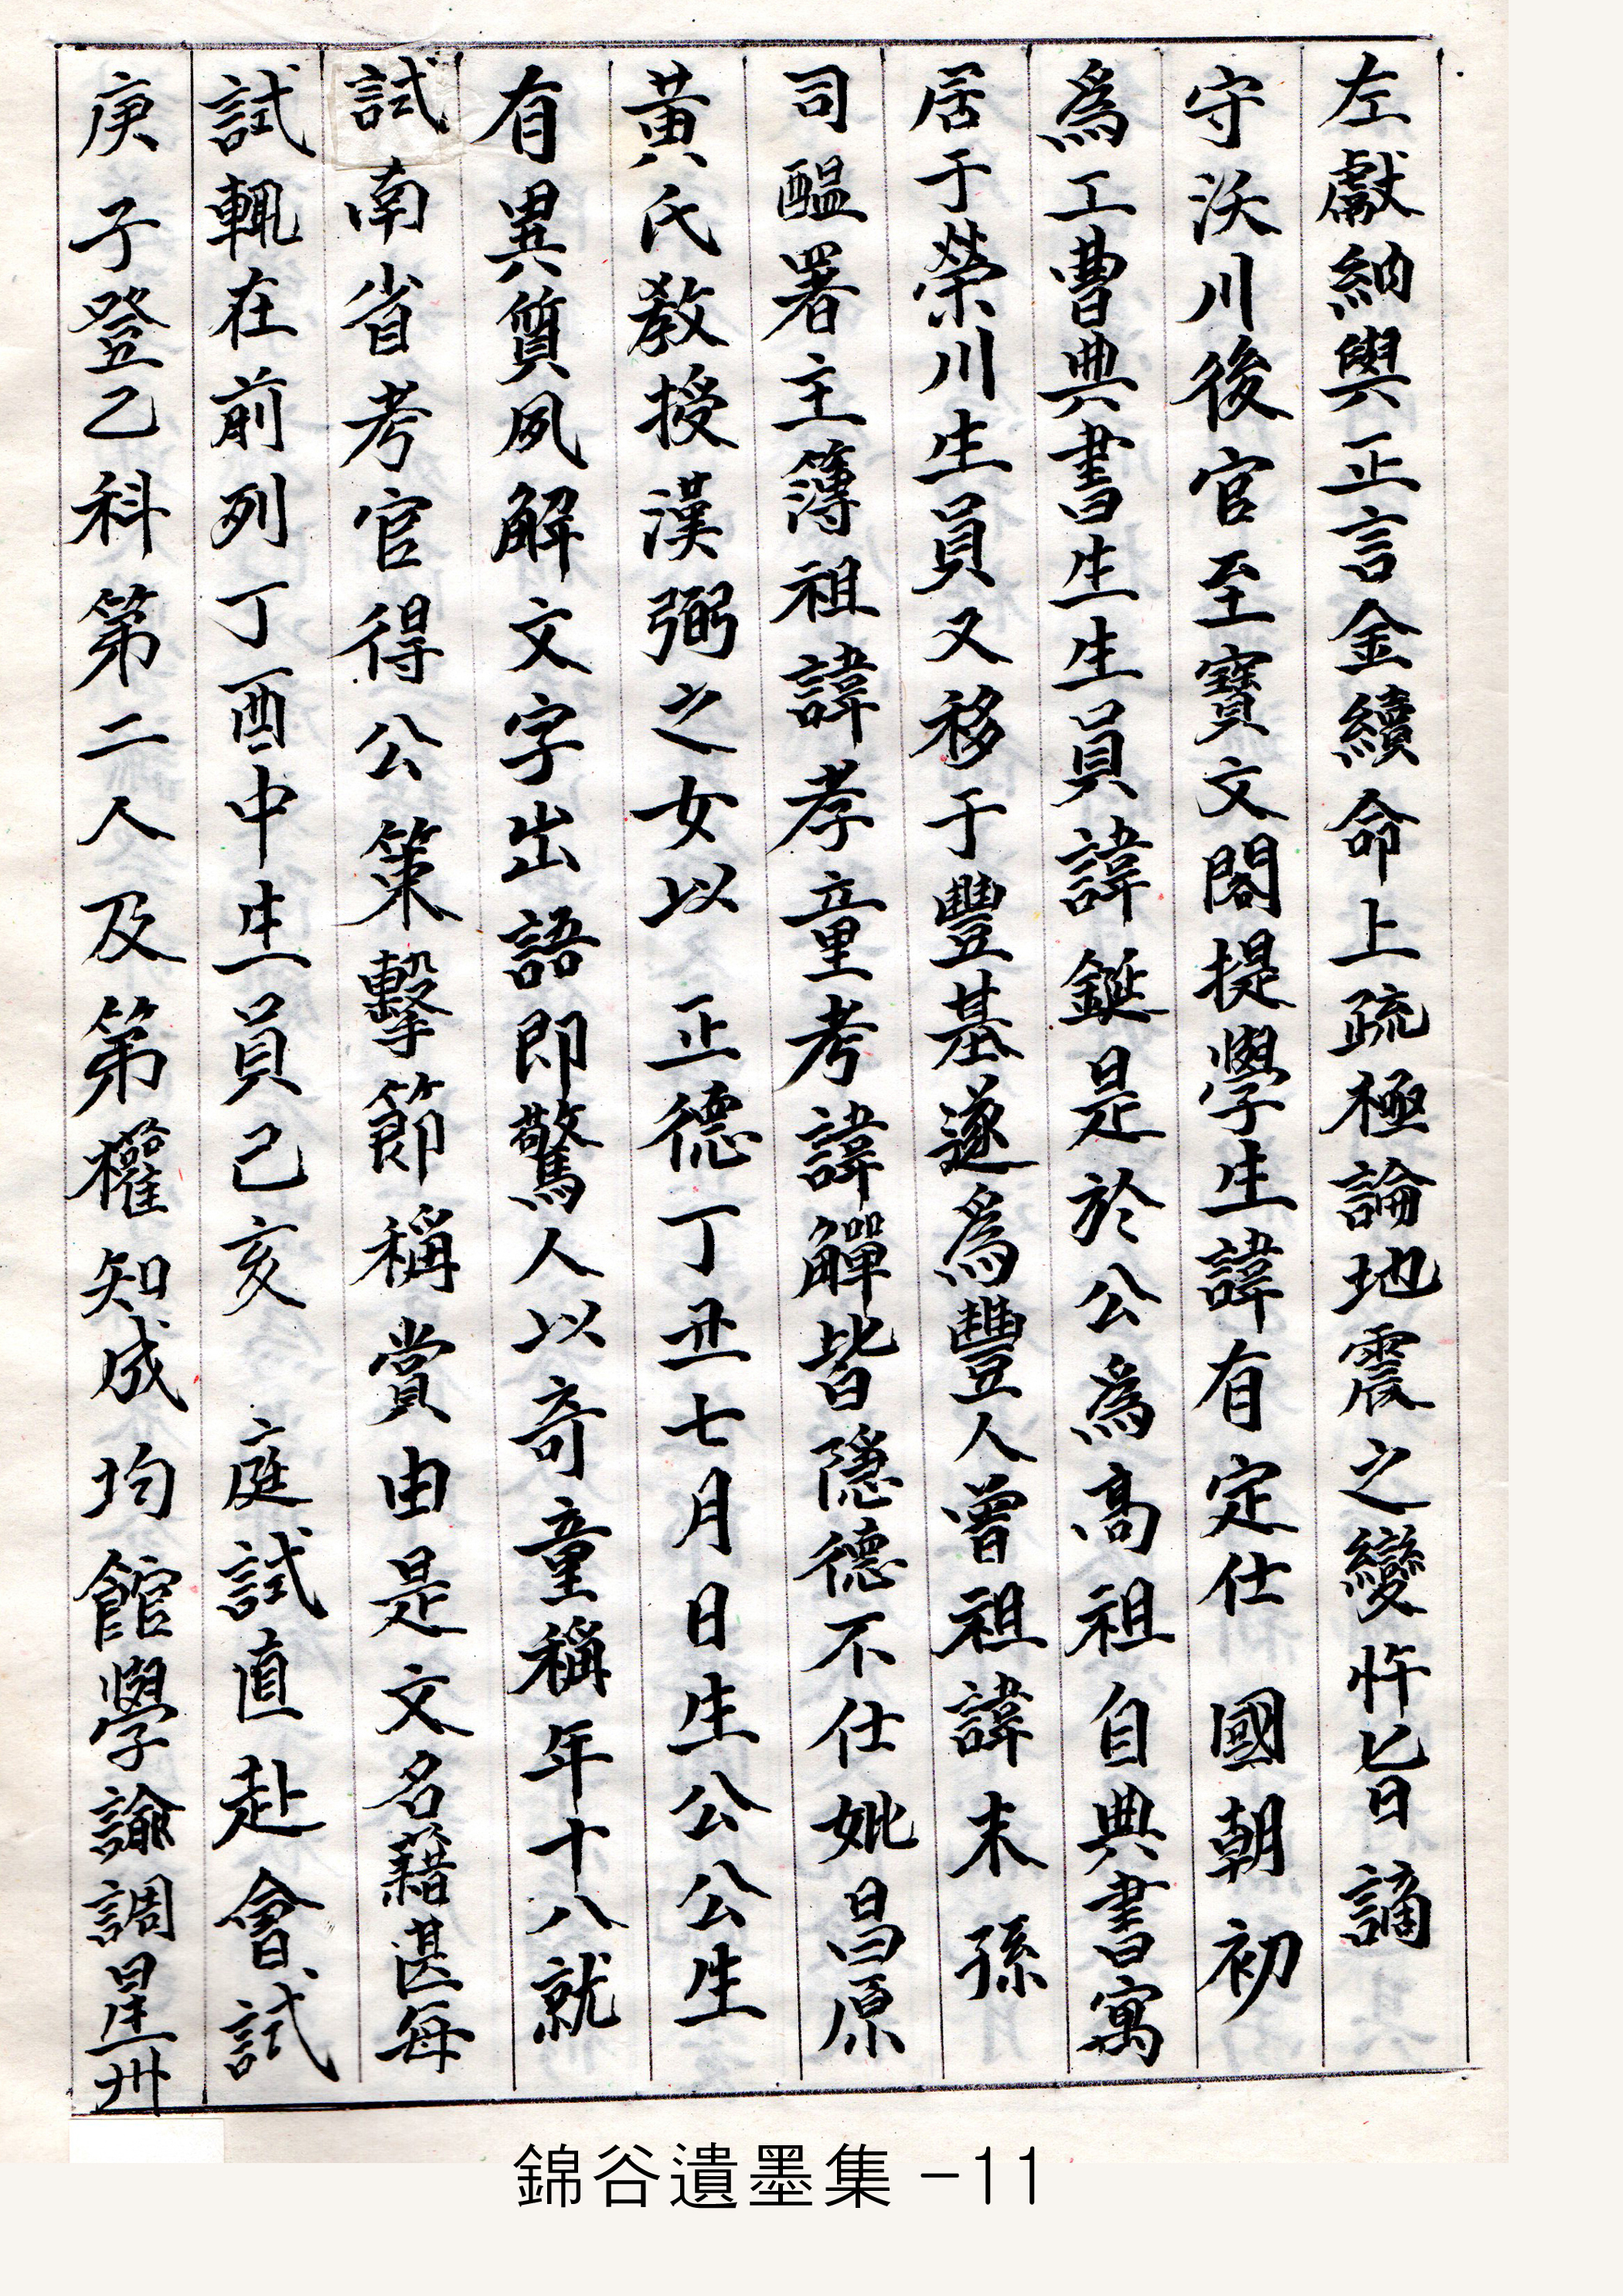 左獻納與正言金續命上疏極論地震之變忤旨謫
守沃川後官至寶文閣提學生諱有定仕 國朝初
爲工曹典書生生員諱鋋是於公爲高祖自典書寓
居于榮川生員又移于豐基遂爲豐人曾祖諱末孫
司醞署主簿祖諱孝童考諱觶皆隱德不仕妣昌原
黃氏教授漢弼之女以 正德丁丑七月日生公公生
有異質夙解文字出語即驚人以奇童稱年十八就
試南省考官得公策擊節稱賞由是文名藉甚每
試輒在前列丁酉中生員己亥 庭試直赴會試
庚子登乙科第二人及第權知成均館學諭調星州
錦谷遺墨集 -11